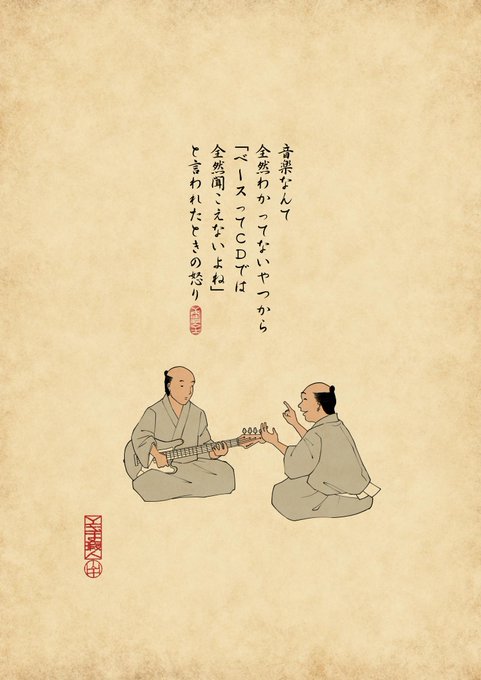 音楽なんて
全然わかってないやつから
「ベースってCDでは
全然聞こえないよね」
と言われたときの怒り